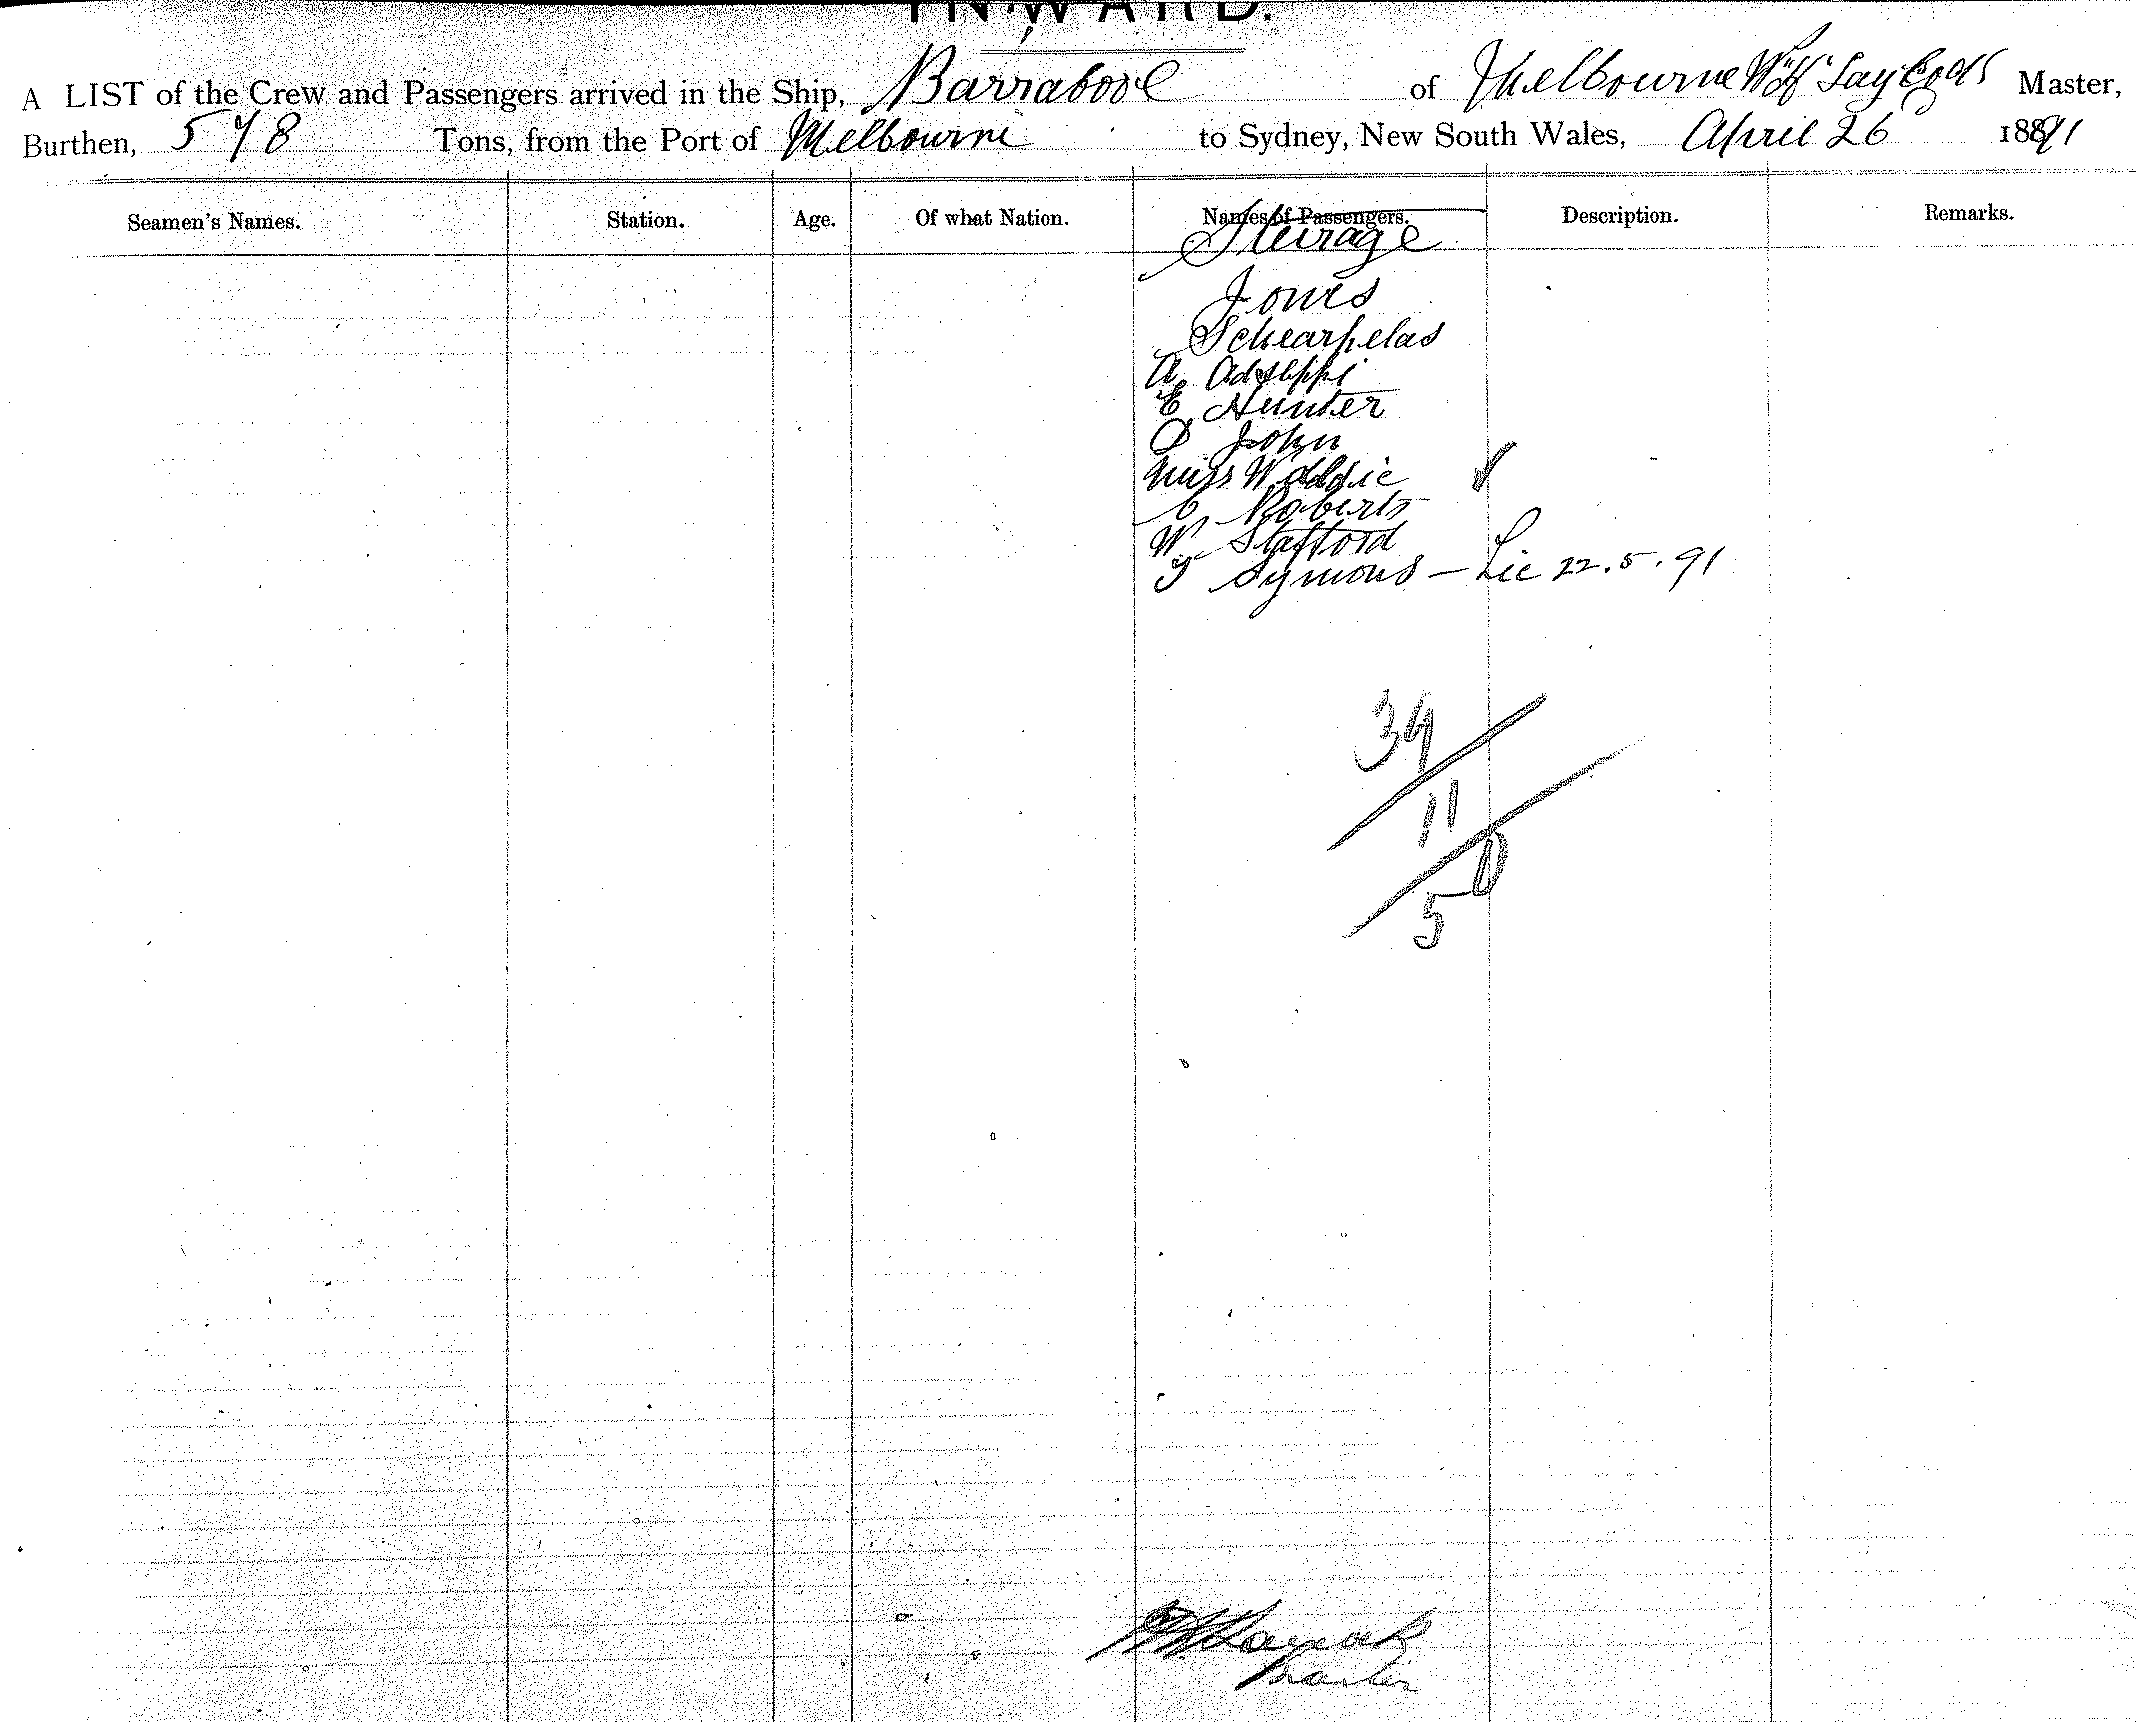 INWARD.
A LIST of the Crew and Passengers arrived in the Ship, Barrabool of Melbourne W H Master,
Burthen, 578 Tons, from the Port of Melbourne to Sydney, New South Wales, April 26 1891
Seamen's Names. Station. Age. Of what Nation. Names of Passengers. Description. Remarks.
Steirage
Jones
Schearpelas
A Adseppi
E Hunter
D John
Miss Waddie
C Roberts
W Stafford
T Symons — Lic 22.5.91
39
11
50
Master